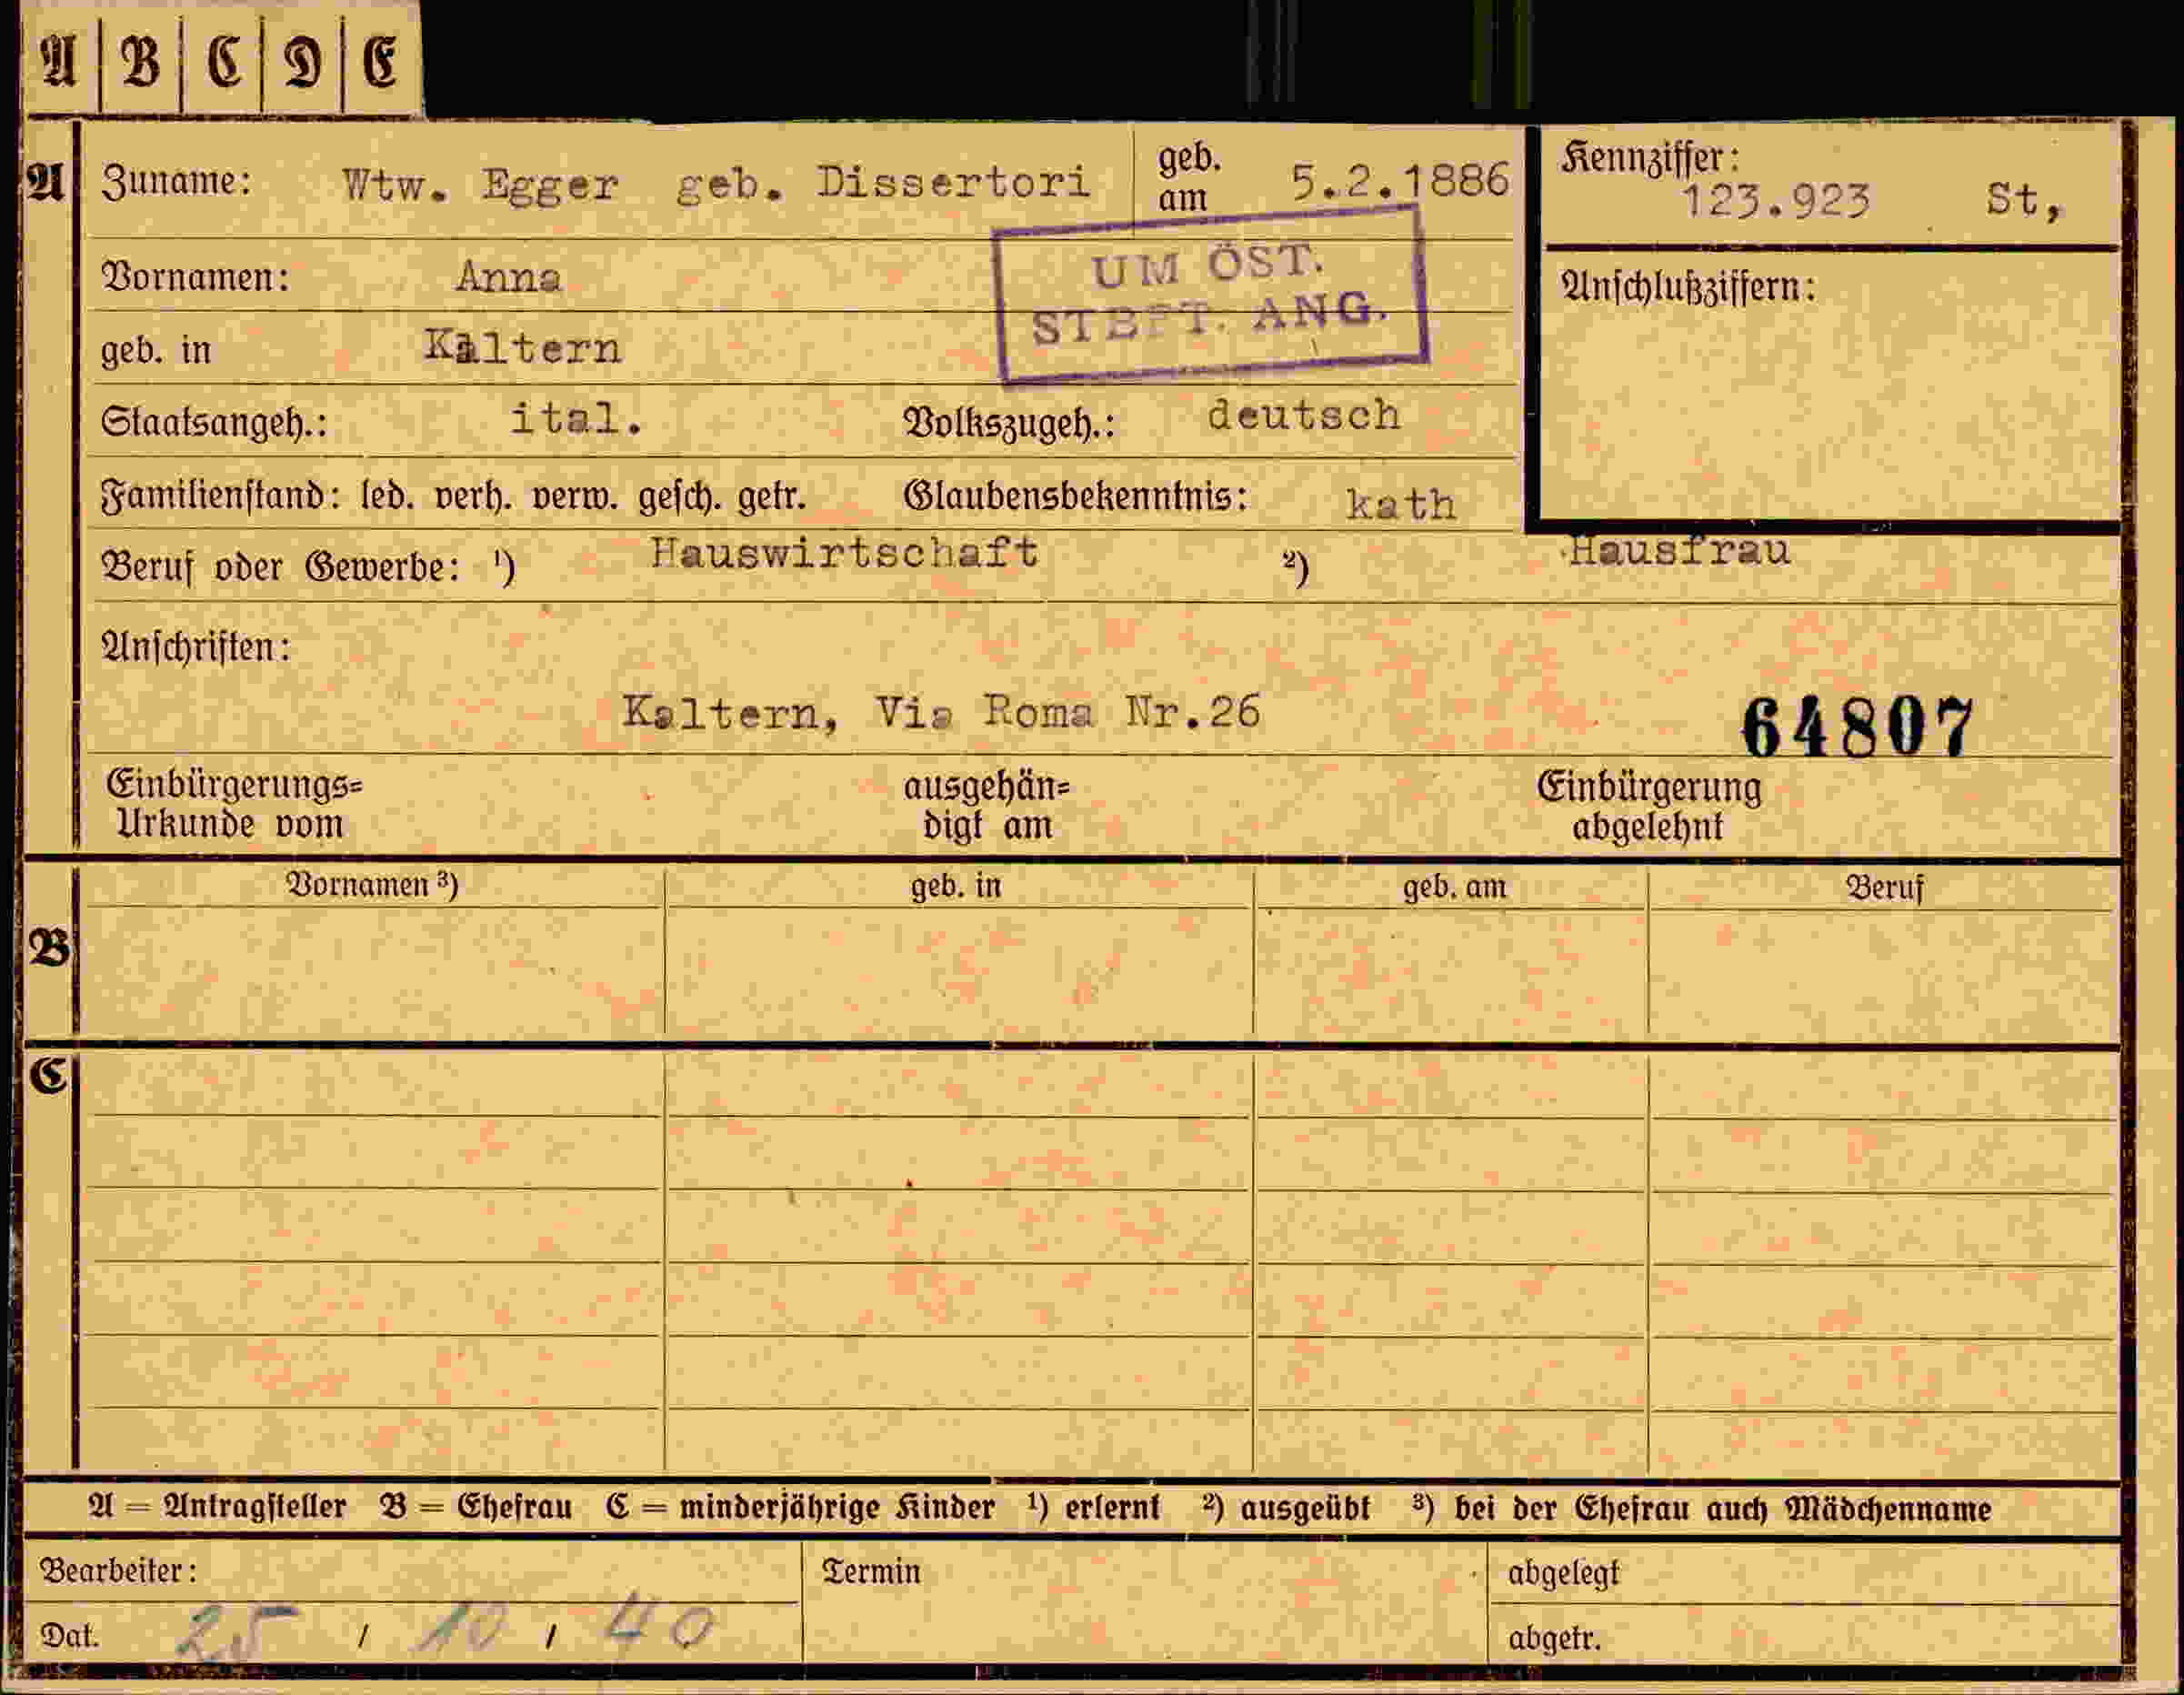 A B C D E
A Zuname: Wtw. Egger geb. Dissertori geb. am 5.2.1886 Kennziffer: 123.923 St,
Vornamen: Anna UM ÖST. Anschlußziffern:
geb. in Kaltern STBFT. ANG.
Staatsangeh.: ital. Volkszugeh.: deutsch
Familienstand: led. verh. verw. gesch. getr. Glaubensbekenntnis: kath
Beruf oder Gewerbe: ¹) Hauswirtschaft ²) Hausfrau
Anschriften:
Kaltern, Via Roma Nr.26 64807
Einbürgerungs= ausgehän= Einbürgerung
Urkunde vom digt am abgelehnt
Vornamen ³) geb. in geb. am Beruf
B
C
A = Antragsteller B = Ehefrau C = minderjährige Kinder ¹) erlernt ²) ausgeübt ³) bei der Ehefrau auch Mädchenname
Bearbeiter: Termin abgelegt
Dat. 25 / 10 / 40 abgetr.